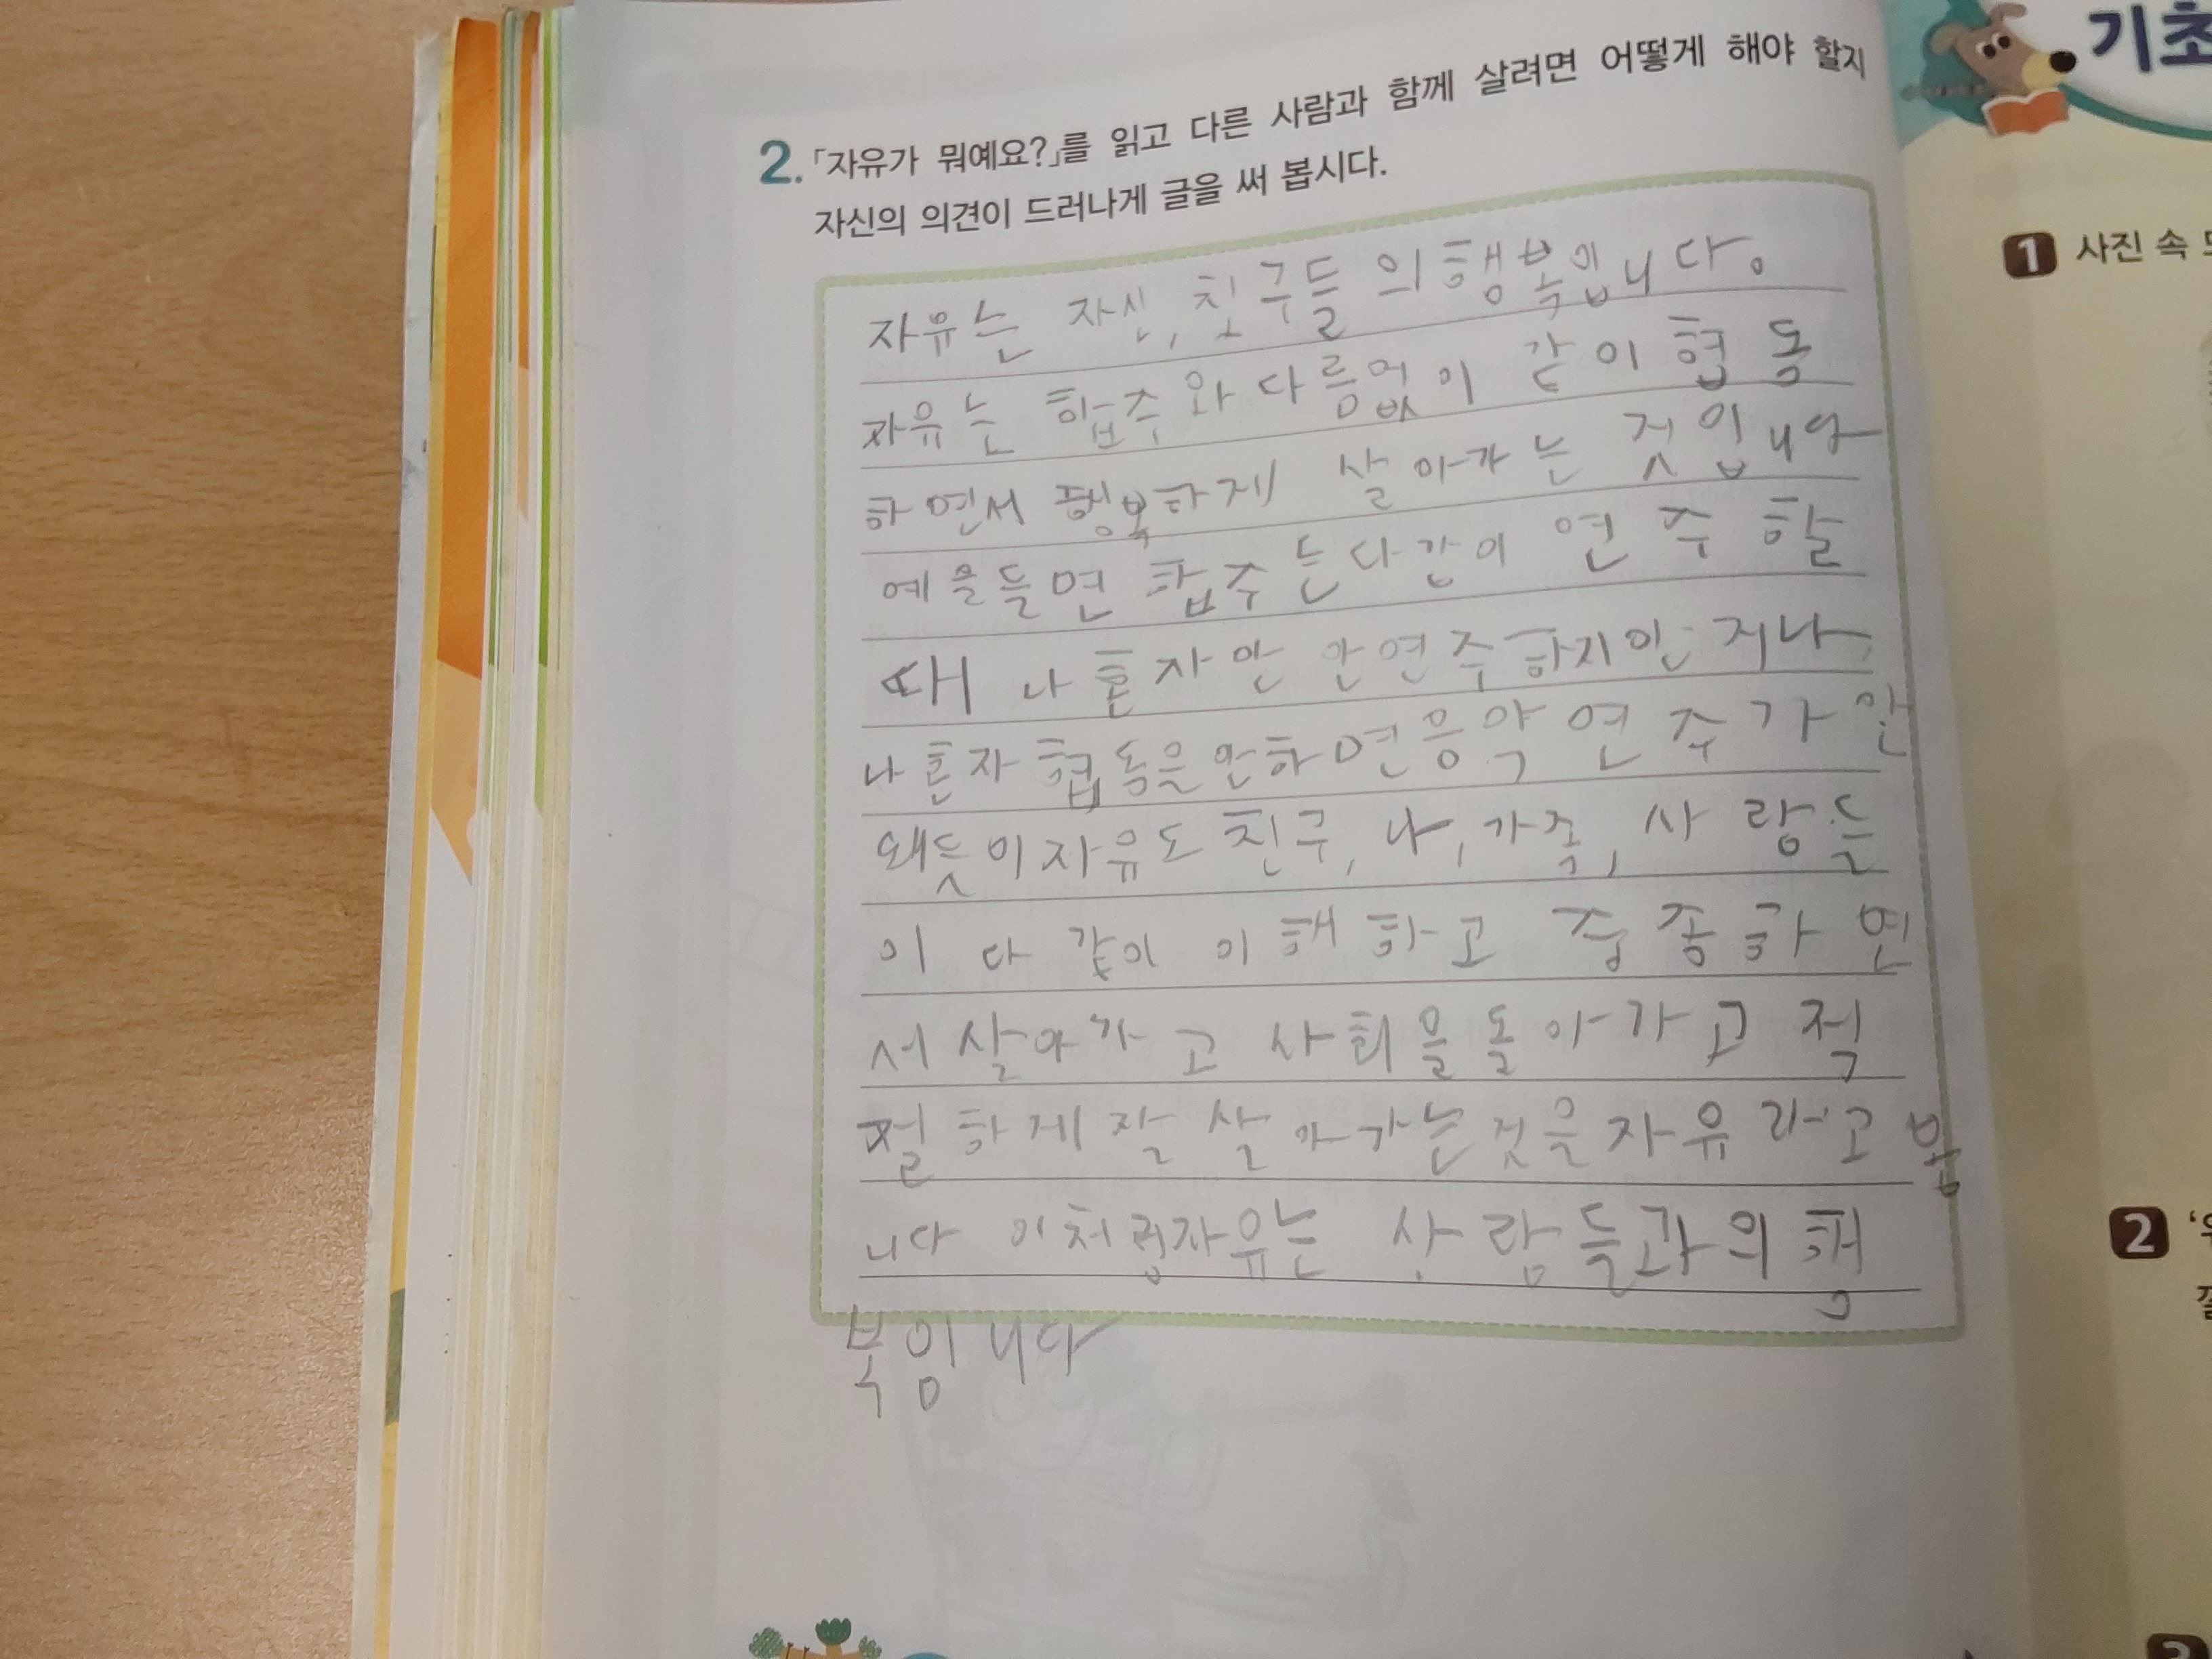 2. 「자유가 뭐예요?」를 읽고 다른 사람과 함께 살려면 어떻게 해야 할지
자신의 의견이 드러나게 글을 써 봅시다.
자유는 자신, 친구들의행복입니다.
자유는 합주와다름없이 같이 협동
하면서 행복하게 살아가는 것입니다
예을들면 합주는다같이 연주할
때 나혼자만 안연주하지안거나
나혼자협동을안하면음악연주가안
돼듯이자유도친구, 나, 가족, 사람들
이 다같이 이해하고 존중하면
서살아가고 사회을돌아가고 적
절하게잘살아가는것을자유라고 봅
니다 이처럼자유는 사람들과의행
복입니다
기초
1 사진 속
2
3